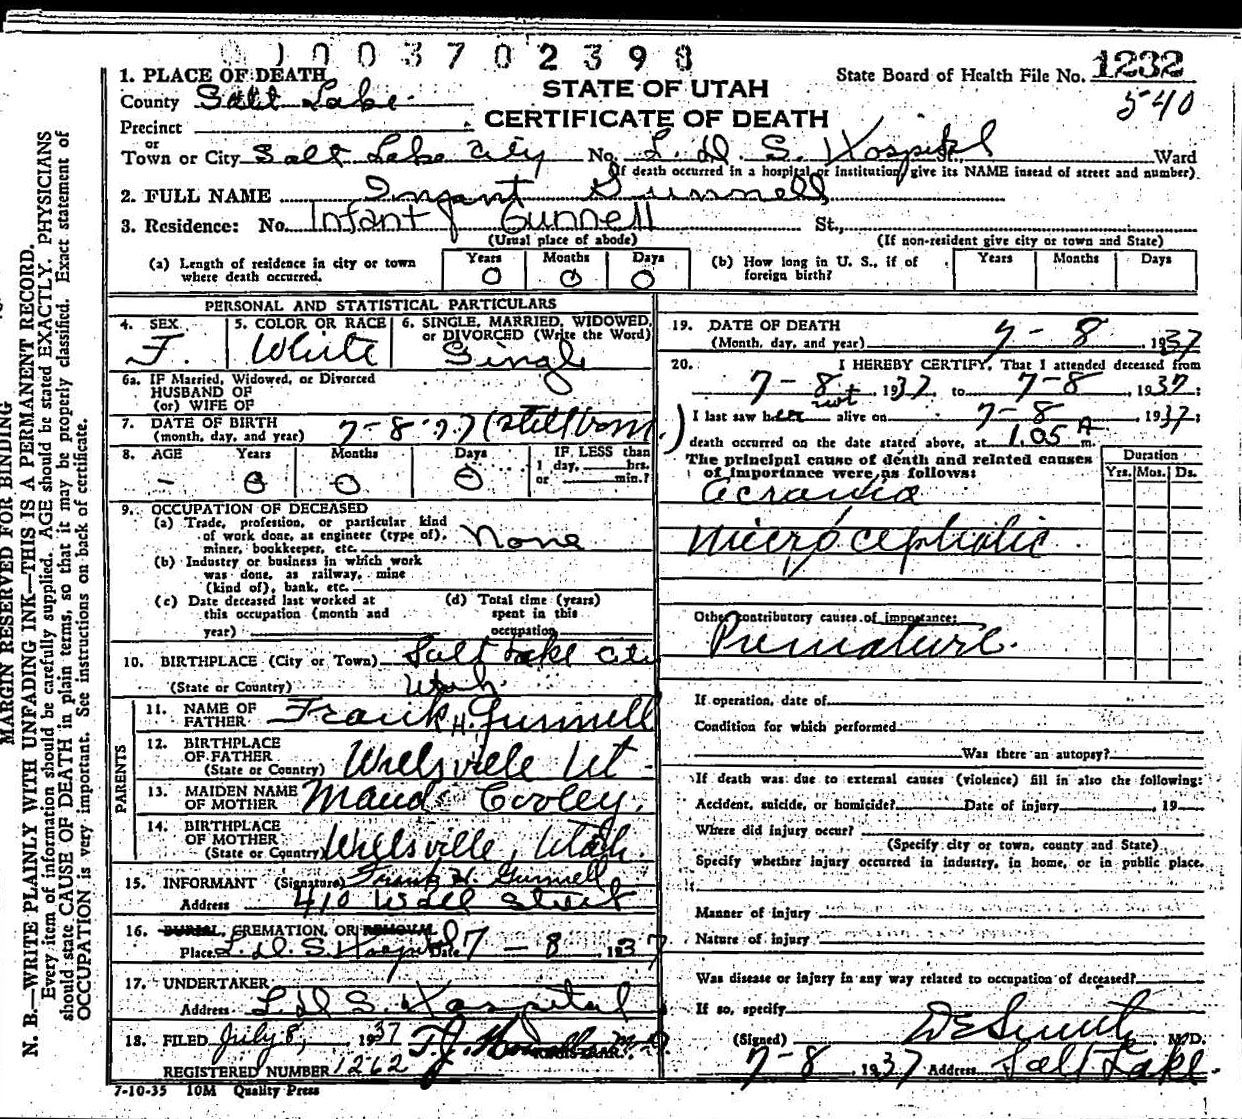 01003702398
1. PLACE OF DEATH
STATE OF UTAH
State Board of Health File No. 1232
County Salt Lake
CERTIFICATE OF DEATH
540
Precinct
or
Town or City Salt Lake City No. L. D. S. Hospital St., Ward
(If death occurred in a hospital or Institution, give its NAME insead of street and number)
2. FULL NAME Infant Gunnell
3. Residence: No. Infant Gunnell St.,
(Usual place of abode) (If non-resident give city or town and State)
(a) Length of residence in city or town where death occurred. Years 0 Months 0 Days 0
(b) How long in U. S., if of foreign birth? Years Months Days
PERSONAL AND STATISTICAL PARTICULARS
4. SEX F. 5. COLOR OR RACE White 6. SINGLE, MARRIED, WIDOWED, or DIVORCED (Write the Word) Single
6a. IF Married, Widowed, or Divorced
HUSBAND OF
(or) WIFE OF
7. DATE OF BIRTH
(month, day, and year) 7-8-37 (stillborn)
8. AGE Years 0 Months 0 Days 0 IF LESS than
1 day, hrs.
or min.?
9. OCCUPATION OF DECEASED
(a) Trade, profession, or particular kind
of work done, as engineer (type of),
miner, bookkeeper, etc. None
(b) Industry or business in which work
was done, as railway, mine
(kind of), bank, etc.
(c) Date deceased last worked at
this occupation (month and
year)
(d) Total time (years)
spent in this
occupation
10. BIRTHPLACE (City or Town) Salt Lake City
(State or Country) Utah.
PARENTS
11. NAME OF
FATHER Frank H. Gunnell
12. BIRTHPLACE
OF FATHER
(State or Country) Wellsville Ut-
13. MAIDEN NAME
OF MOTHER Maud Cooley.
14. BIRTHPLACE
OF MOTHER
(State or Country) Wellsville, Utah.
15. INFORMANT (Signature) Frank H. Gunnell
Address 410 Wall Street
16. BURIAL, CREMATION, OR REMOVAL
Place L. D. S. Hospital Date 7-8 1937
17. UNDERTAKER
Address L. D. S. Hospital
18. FILED July 8, 1937
REGISTRAR.
REGISTERED NUMBER 1262
7-10-35 10M Quality Press
19. DATE OF DEATH
(Month, day, and year) 7-8 1937
20. I HEREBY CERTIFY, That I attended deceased from
7-8 1937 to 7-8 1937;
not
I last saw her alive on 7-8 1937;
death occurred on the date stated above, at 1.05 A m.
The principal cause of death and related causes
of importance were as follows:
Duration
Yrs. Mos. Ds.
Acrania
Microcephalic
Other contributory causes of importance:
Premature.
If operation, date of
Condition for which performed
Was there an autopsy?
If death was due to external causes (violence) fill in also the following:
Accident, suicide, or homicide? Date of injury 19
Where did injury occur?
(Specify city or town, county and State)
Specify whether injury occurred in industry, in home, or in public place.
Manner of injury
Nature of injury
Was disease or injury in any way related to occupation of deceased?
If so, specify
(Signed) D E Smith M.D.
7-8 1937 Address Salt Lake
MARGIN RESERVED FOR BINDING
N. B.—WRITE PLAINLY WITH UNFADING INK—THIS IS A PERMANENT RECORD.
Every item of information should be carefully supplied. AGE should be stated EXACTLY. PHYSICIANS
should state CAUSE OF DEATH in plain terms, so that it may be properly classified. Exact statement of
OCCUPATION is very important. See instructions on back of certificate.